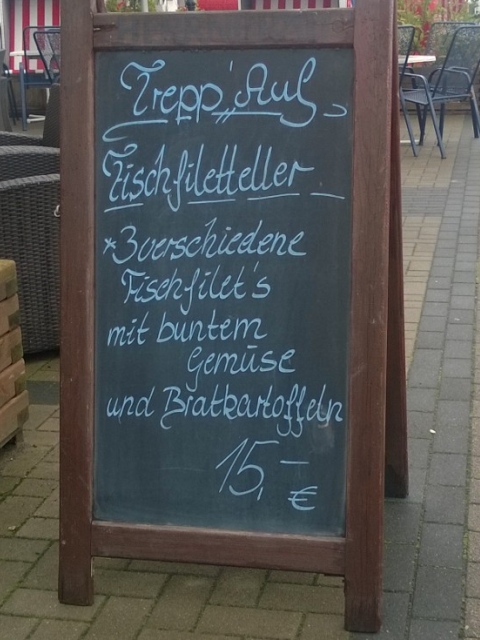 Trepp'Auf
Fischfiletteller
*3 verschiedene
Fischfilet's
mit buntem
Gemüse
und Bratkartoffeln
15,-
€